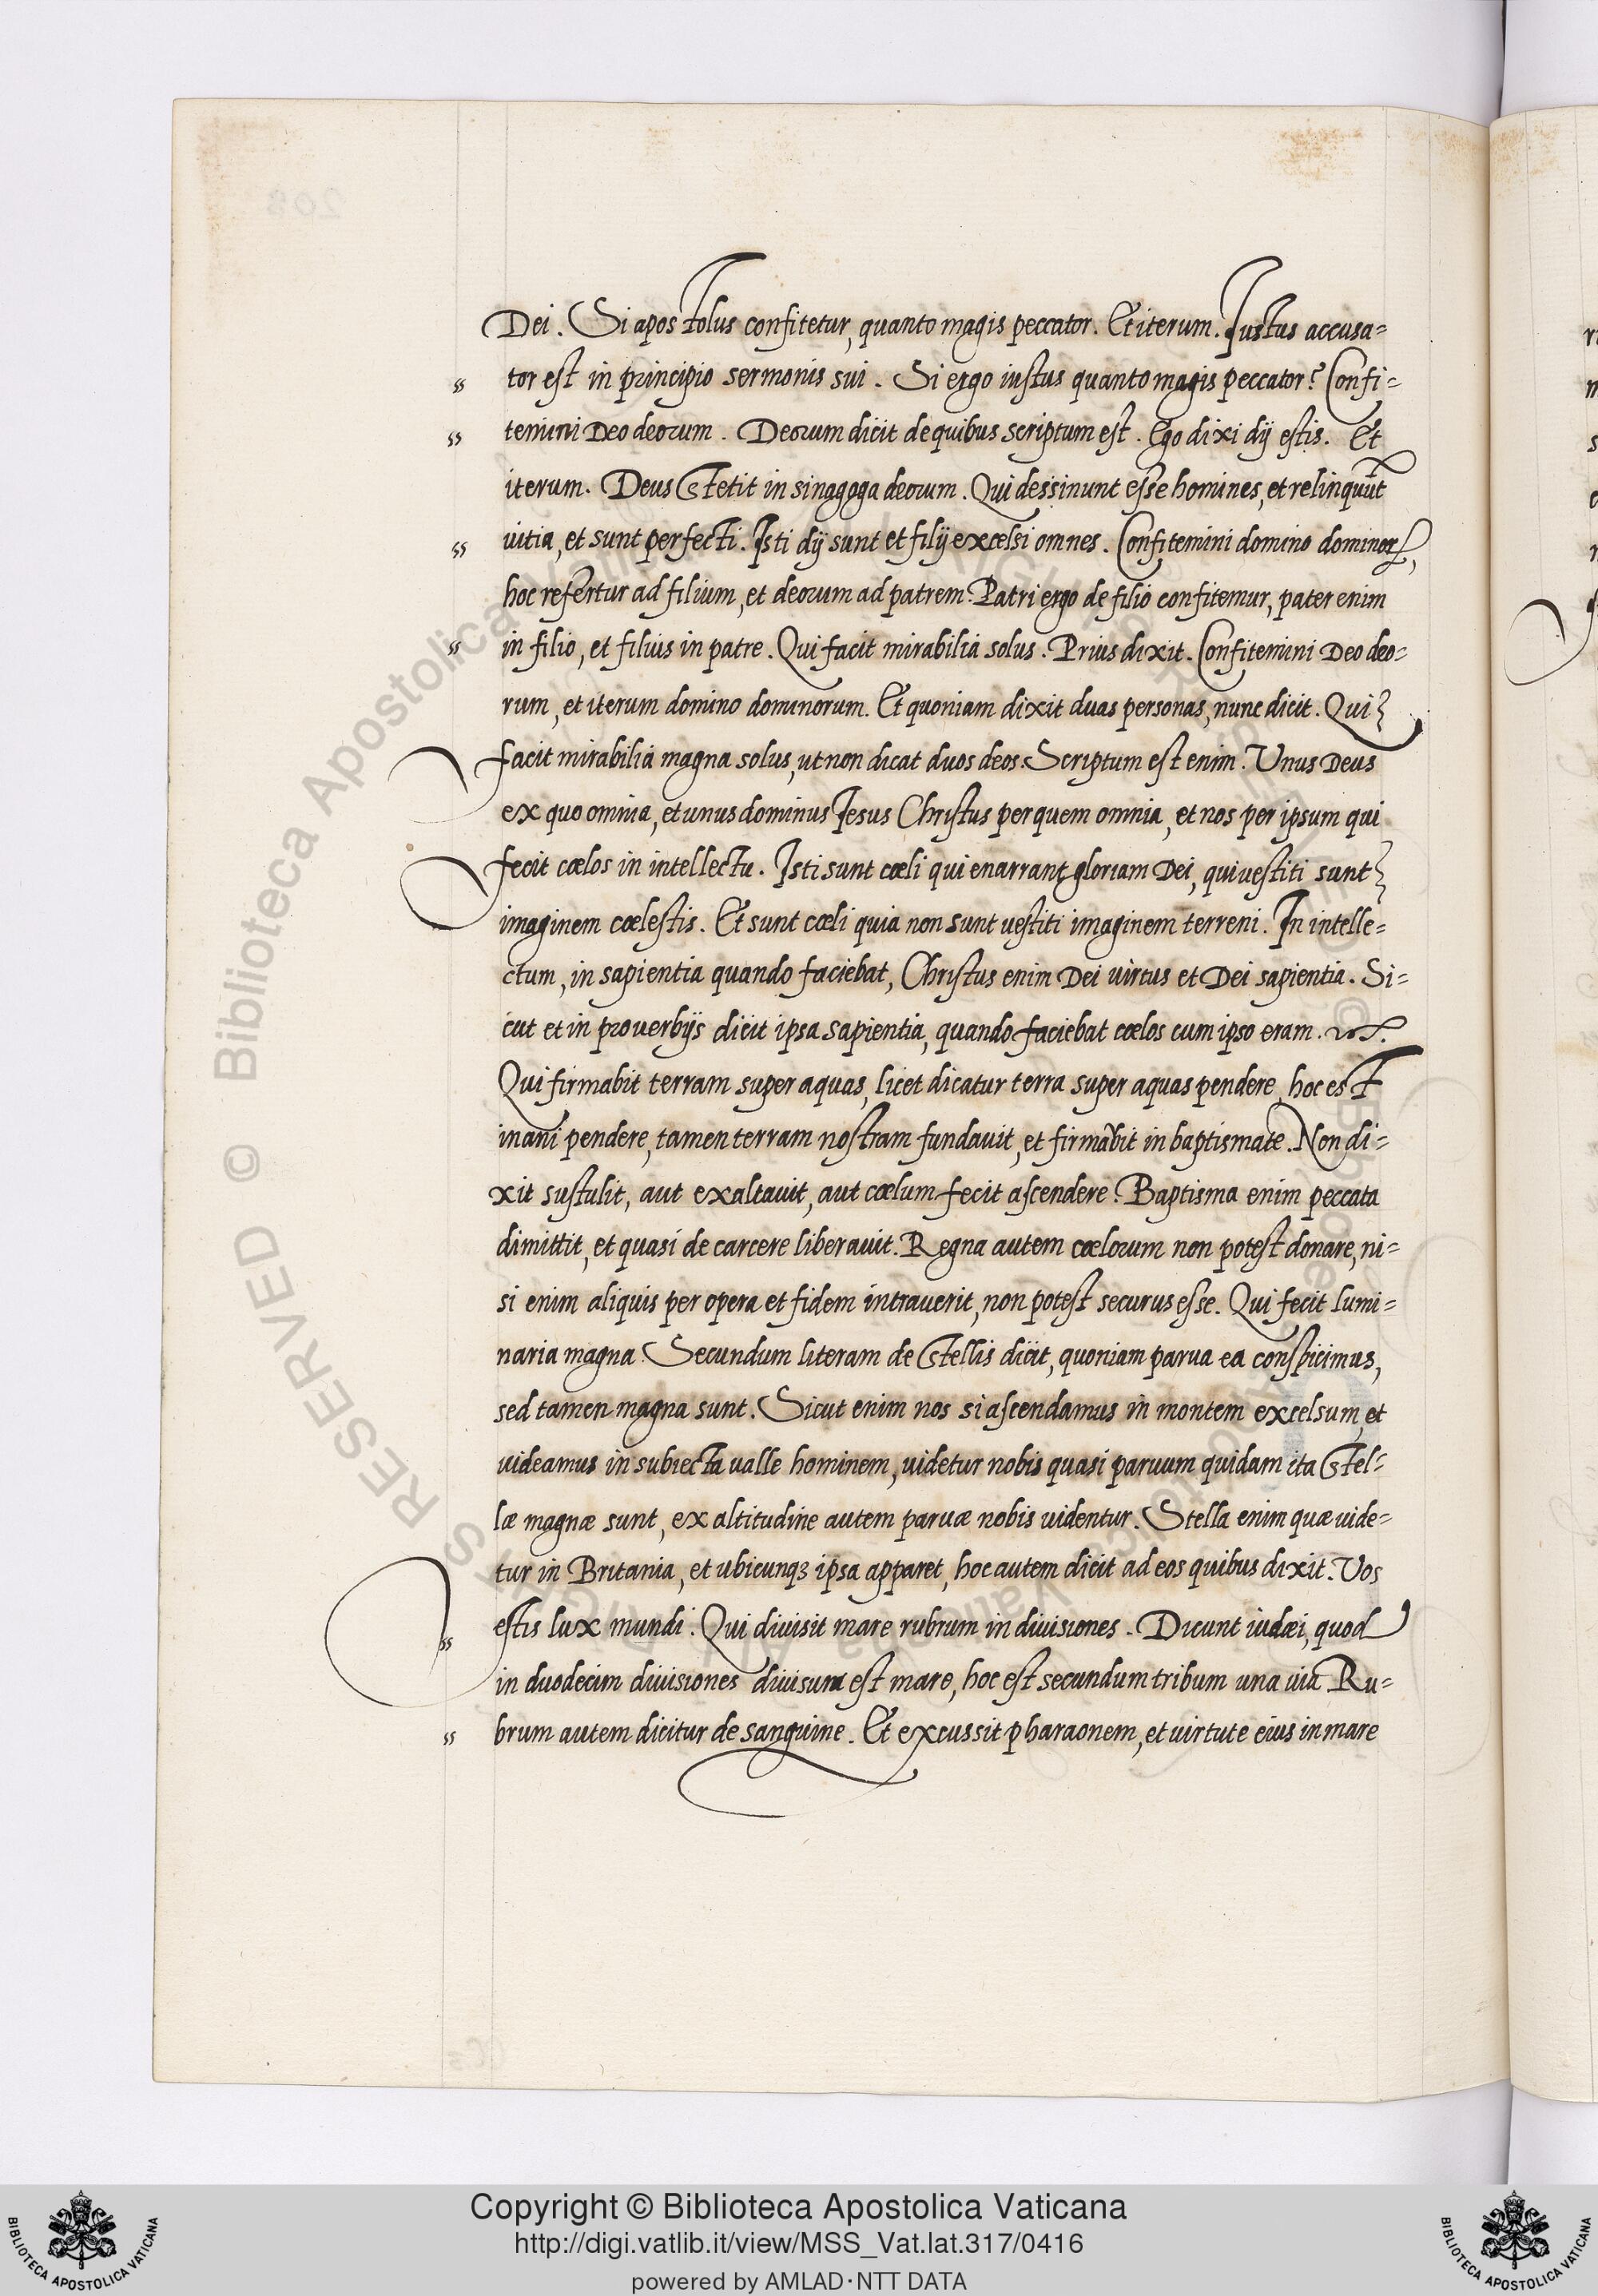 Dei. Si apostolus confitetur, quanto magis peccator. Et iterum. Iustus accusa=
tor est in principio sermonis sui. Si ergo iustus quanto magis peccator? Confi=
temini Deo deorum. Deorum dicit de quibus scriptum est. Ego dixi dij estis. Et
iterum. Deus stetit in sinagoga deorum. Qui dessinunt esse homines, et relinquūt
uitia, et sunt perfecti. Isti dij sunt et filij excelsi omnes. Confitemini domino dominorꝝ,
hoc refertur ad filium, et deorum ad patrem. Patri ergo de filio confitemur, pater enim
in filio, et filius in patre. Qui facit mirabilia solus. Prius dixit. Confitemini Deo deo=
rum, et iterum domino dominorum. Et quoniam dixit duas personas, nunc dicit. Qui
facit mirabilia magna solus, ut non dicat duos deos. Scriptum est enim. Unus Deus
ex quo omnia, et unus dominus Iesus Christus per quem omnia, et nos per ipsum qui
fecit cœlos in intellectu. Isti sunt cœli qui enarrant gloriam Dei, qui uestiti sunt
imaginem cœlestis. Et sunt cœli quia non sunt uestiti imaginem terreni. In intelle=
ctum, in sapientia quando faciebat, Christus enim Dei uirtus et Dei sapientia. Si=
cut et in prouerbijs dicit ipsa sapientia, quando faciebat cœlos cum ipso eram.
Qui firmabit terram super aquas, licet dicatur terra super aquas pendere, hoc est
inani pendere, tamen terram nostram fundauit, et firmabit in baptismate. Non di=
xit sustulit, aut exaltauit, aut cœlum fecit ascendere. Baptisma enim peccata
dimittit, et quasi de carcere liberauit. Regna autem cœlorum non potest donare, ni=
si enim aliquis per opera et fidem intrauerit, non potest securus esse. Qui fecit lumi=
naria magna. Secundum literam de stellis dicit, quoniam parua ea conspicimus,
sed tamen magna sunt. Sicut enim nos si ascendamus in montem excelsum, et
uideamus in subiecta ualle hominem, uidetur nobis quasi paruum quidam ita stel=
læ magnæ sunt, ex altitudine autem paruæ nobis uidentur. Stella enim quæ uide=
tur in Britania, et ubicunqꝫ ipsa apparet, hoc autem dicit ad eos quibus dixit. Vos
estis lux mundi. Qui diuisit mare rubrum in diuisiones. Dicunt iudæi, quod
in duodecim diuisiones diuisum est mare, hoc est secundum tribum una uia Ru=
brum autem dicitur de sanguine. Et excussit pharaonem, et uirtute eius in mare
Copyright © Biblioteca Apostolica Vaticana
http://digi.vatlib.it/view/MSS_Vat.lat.317/0416
powered by AMLAD·NTT DATA
BIBLIOTECA APOSTOLICA VATICANA
BIBLIOTECA APOSTOLICA VATICANA